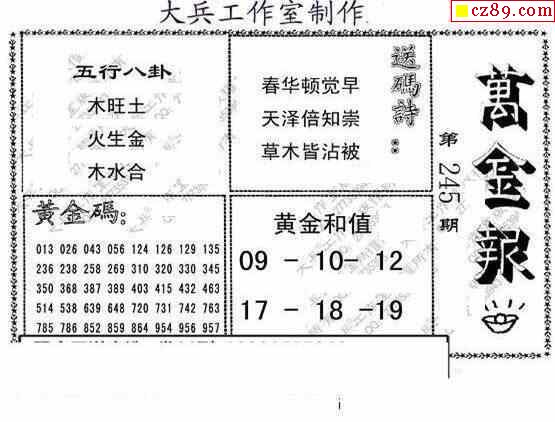 大兵工作室制作
cz89.com
五行八卦
木旺土
火生金
木水合
送碼詩:
春华顿觉早
天泽倍知崇
草木皆沾被
萬金報
第245期
黃金碼:
013 026 043 056 124 126 129 135
236 238 258 269 310 320 330 345
350 368 387 389 403 415 432 463
514 538 639 648 720 731 742 763
785 786 852 859 864 954 956 957
黄金和值
09 - 10- 12
17 - 18 -19